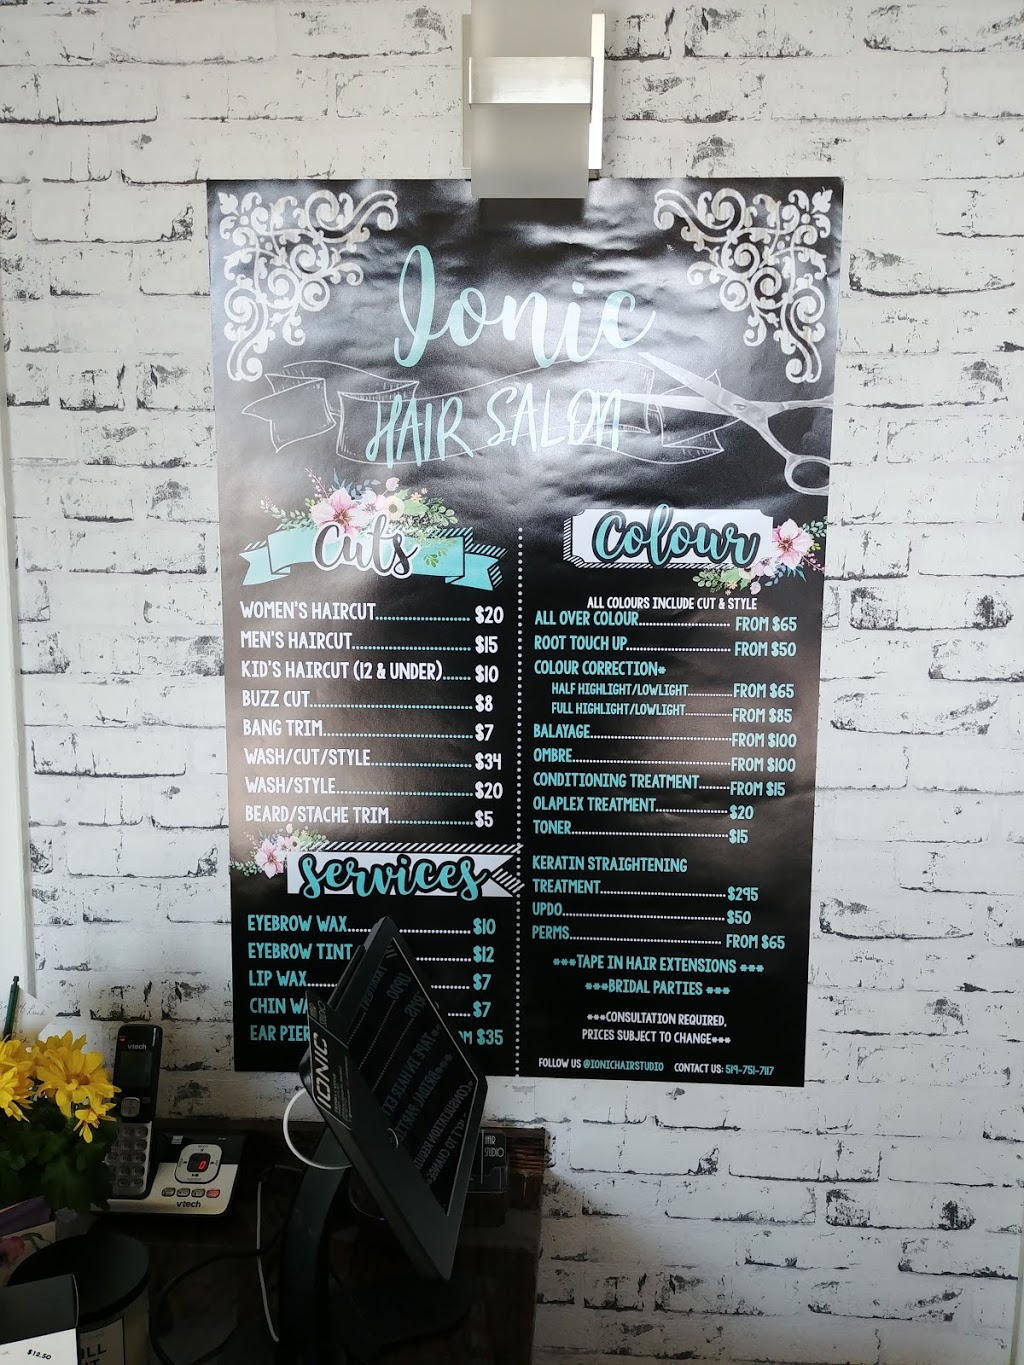 Ionic
HAIR SALON
Cuts
WOMEN'S HAIRCUT........................ $20
MEN'S HAIRCUT.............................. $15
KID'S HAIRCUT (12 & UNDER)....... $10
BUZZ CUT........................................ $8
BANG TRIM...................................... $7
WASH/CUT/STYLE......................... $34
WASH/STYLE................................... $20
BEARD/STACHE TRIM..................... $5
Services
EYEBROW WAX............................. $10
EYEBROW TINT $12
LIP WAX $7
CHIN $7
EAR $35
Colour
ALL COLOURS INCLUDE CUT & STYLE
ALL OVER COLOUR........................ FROM $65
ROOT TOUCH UP........................... FROM $50
COLOUR CORRECTION*
HALF HIGHLIGHT/LOWLIGHT............FROM $65
FULL HIGHLIGHT/LOWLIGHT.............FROM $85
BALAYAGE.....................................FROM $100
OMBRE..........................................FROM $100
CONDITIONING TREATMENT........FROM $15
OLAPLEX TREATMENT................... $20
TONER.......................................... $15
KERATIN STRAIGHTENING
TREATMENT................................. $295
UPDO........................................... $50
PERMS......................................... FROM $65
***TAPE IN HAIR EXTENSIONS ***
***BRIDAL PARTIES ***
***CONSULTATION REQUIRED,
PRICES SUBJECT TO CHANGE***
FOLLOW US @IONICHAIRSTUDIO CONTACT US: 519-751-7117
IONIC
vtech
0
vtech
HAIR
STUDIO
$12.50